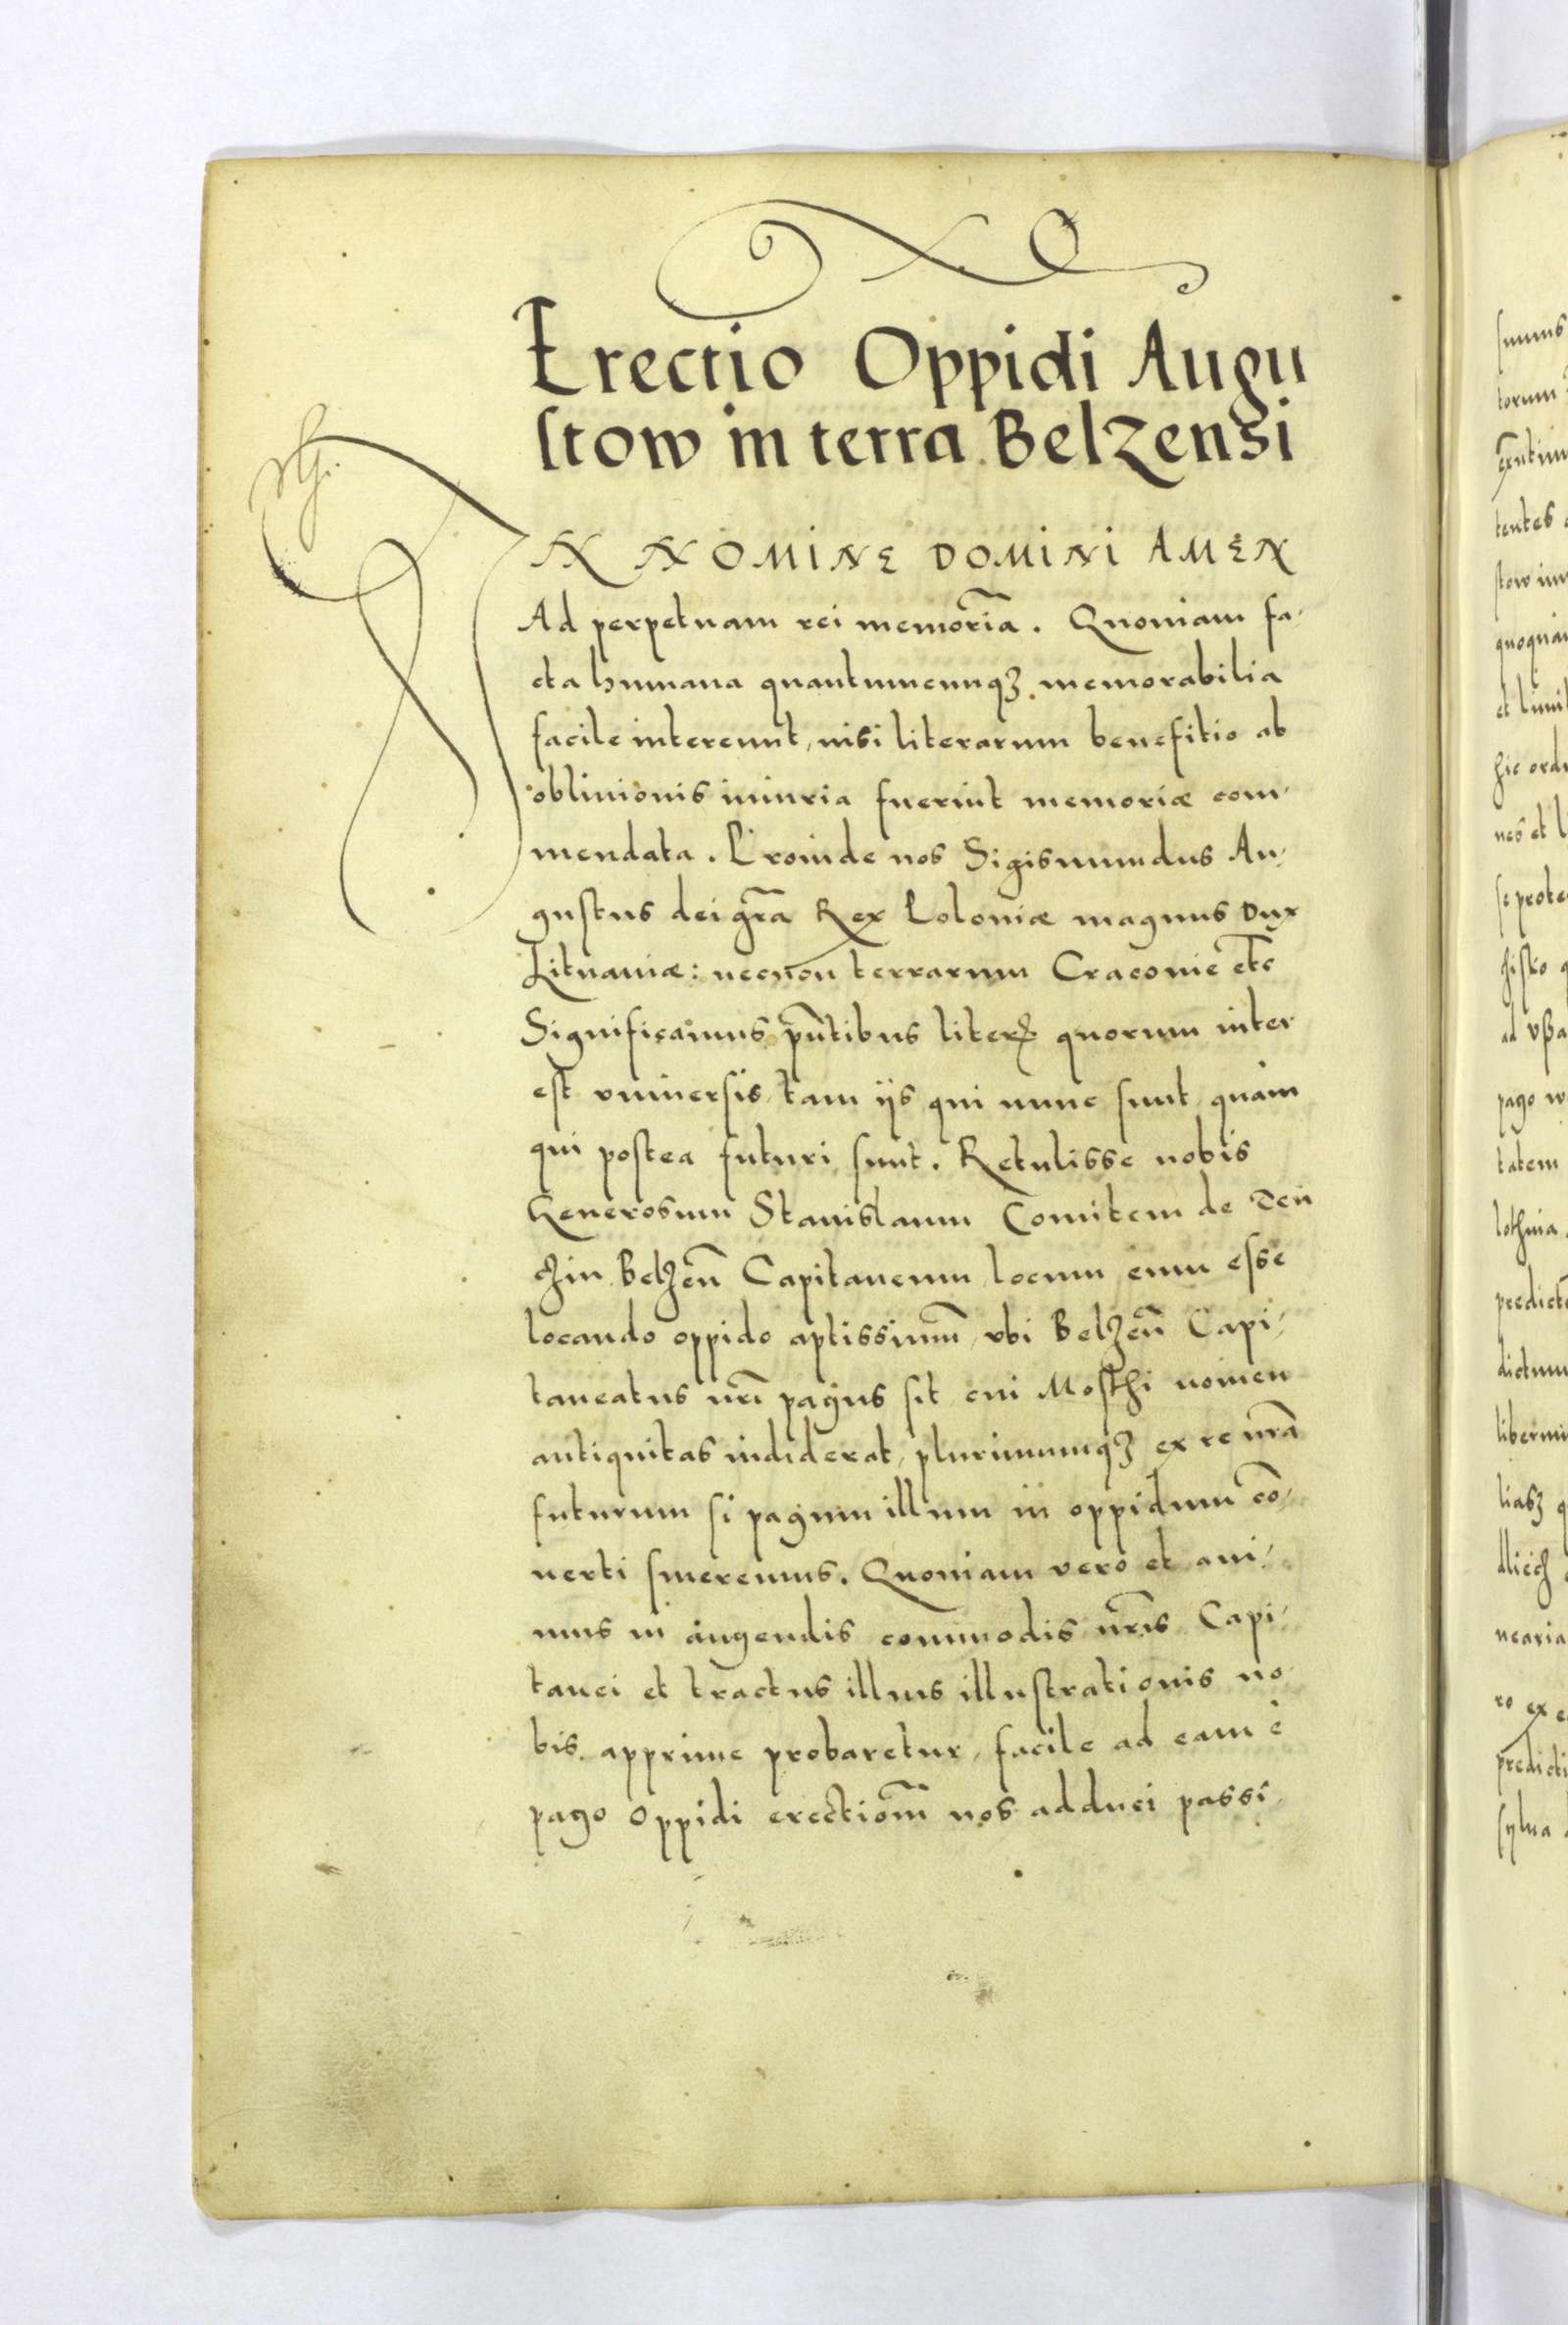 Erectio Oppidi Augu
stow in terra Belzensi
IN NOMINE DOMINI AMEN
Ad perpetuam rei memoriã. Quoniam fa-
cta humana quantumcunqꝫ memorabilia
facile intereunt, nisi literarum benefitio ab
obliuionis iniuria fuerint memoriæ com-
mendata. Proinde nos Sigismundus Au-
gustus dei grã Rex Poloniæ magnus Dux
Lituaniæ: necnon terrarum Cracouie etc
Significamus pñtibus literꝭ quorum inter
est vniuersis, tam ijs qui nunc sunt, quam
qui postea futuri sunt. Retulisse nobis
Generosum Stanislaum Comitem de Ten
czin Belzeñ Capitaneum, locum eum esse
locando oppido aptissimũ, vbi Belzeñ Capi-
taneatus nrĩ pagus sit cui Mosthi nomen
antiquitas indiderat, plurimumqꝫ ex re nrã
futurum si pagum illum in oppidum cõ-
uerti sineremus. Quoniam vero et ani-
mus in augendis commodis nrĩs Capi-
tanei et tractus illius illustrationis no-
bis apprime probaretur, facile ad eam è
pago oppidi erectioñm nos adduci passi
sumus
torum
tentes
stow
quoquam
et limit
hic ord
nes et l
se prote
ad vßa
pago w
tatem
predict
dictum
liberum
nearia
ro ex e
predicti
sylua